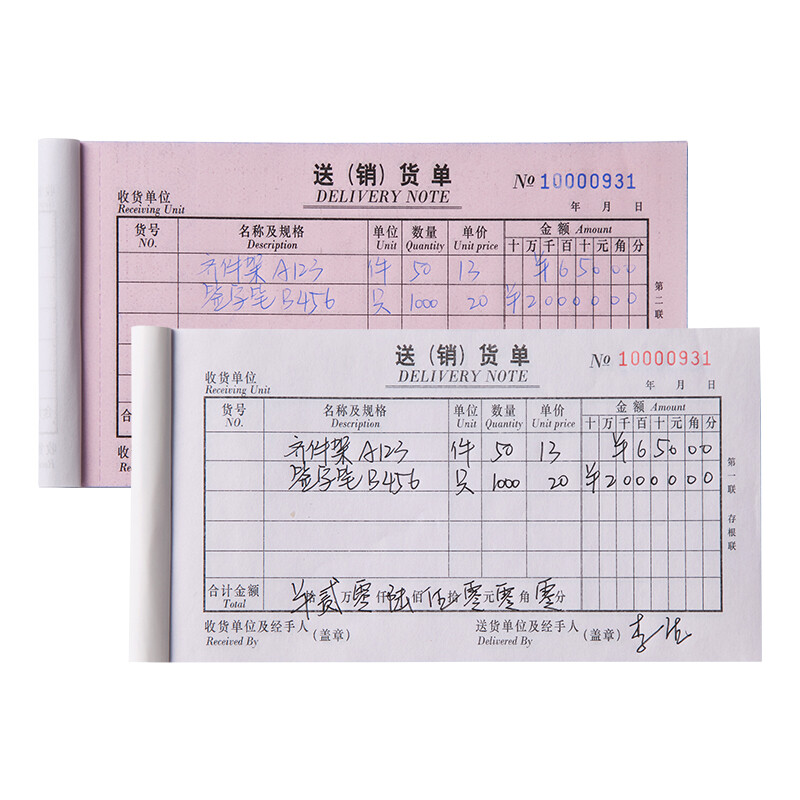 送（销）货单
DELIVERY NOTE
№ 10000931
收货单位
Receiving Unit
年 月 日
货号 名称及规格 单位 数量 单价 金额 Amount
NO. Description Unit Quantity Unit price 十 万 千 百 十 元 角 分
文件架 A123 件 50 13 ¥ 6 5 0 0 0
签字笔 B456 只 1000 20 ¥ 2 0 0 0 0 0 0
第二联
合
收
Rece
送（销）货单
DELIVERY NOTE
№ 10000931
收货单位
Receiving Unit
年 月 日
货号 名称及规格 单位 数量 单价 金额 Amount
NO. Description Unit Quantity Unit price 十 万 千 百 十 元 角 分
文件架 A123 件 50 13 ¥ 6 5 0 0 0
签字笔 B456 只 1000 20 ¥ 2 0 0 0 0 0 0
第一联 存根联
合计金额 贰 万 零 仟 陆 佰 伍 拾 零 元 零 角 零 分
Total
收货单位及经手人（盖章） 送货单位及经手人（盖章）
Received By Delivered By